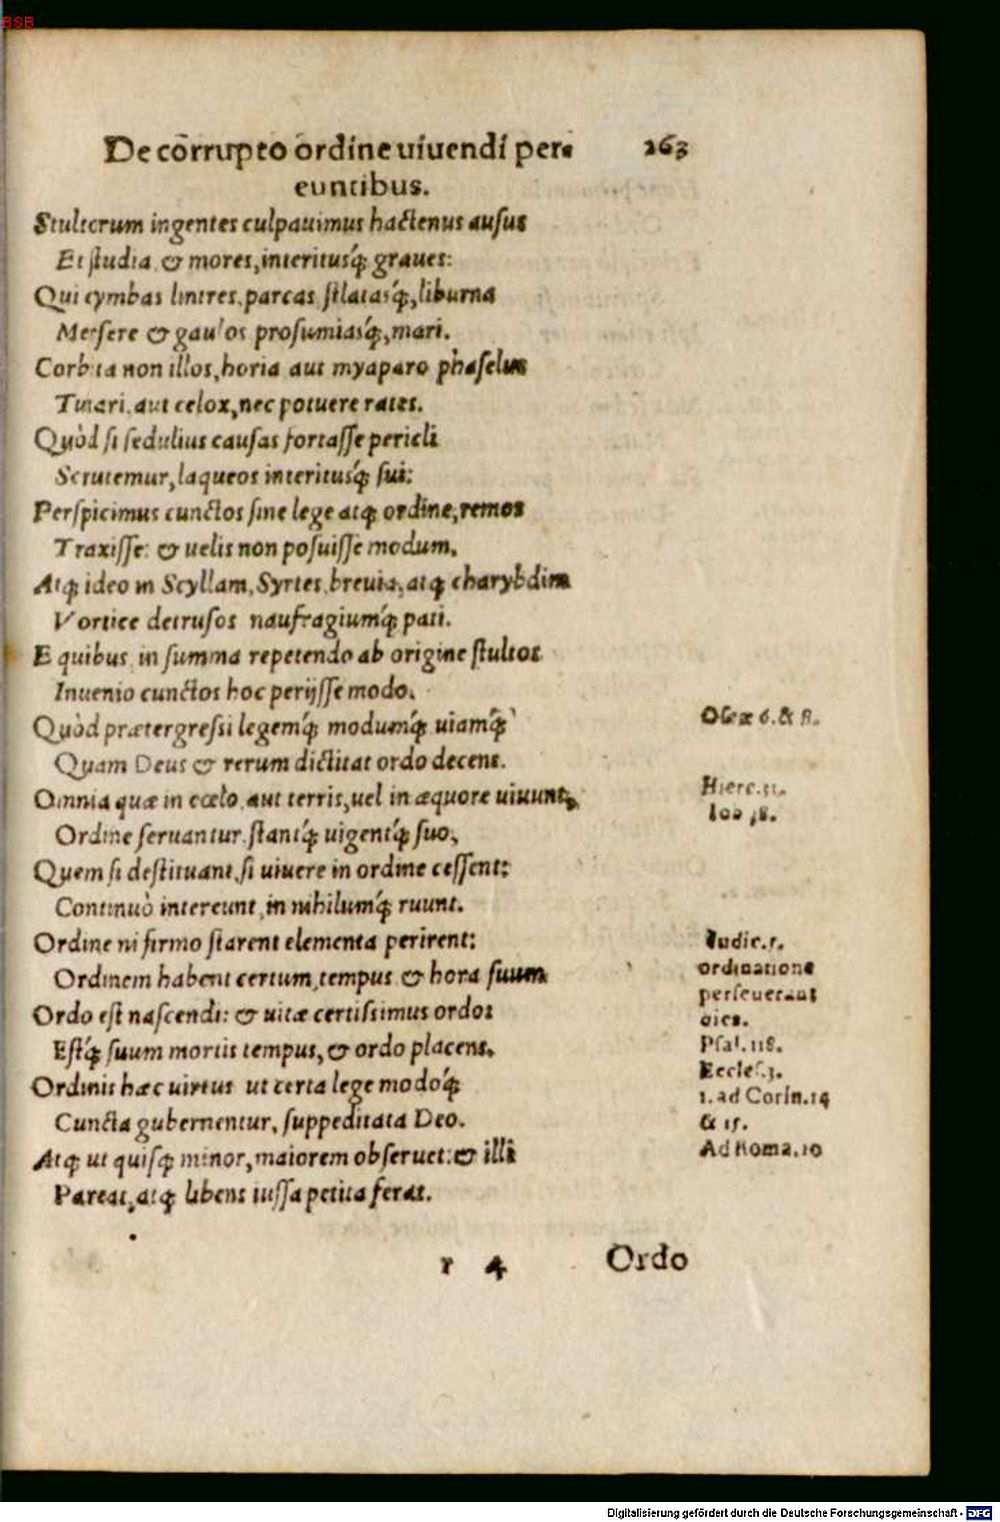 BSB
De cõrrupto ordine uiuendi per-
263
euntibus.
Stultorum ingentes culpauimus hactenus ausus
Et studia & mores, interitusq́; graues:
Qui cymbas lintres, parcas stlatasq́;, liburna
Mersere & gaulos prosumiasq́;, mari.
Corbita non illos, horia aut myaparo phaselus
Tutari, aut celox, nec potuere rates.
Quòd si sedulius causas fortasse pericli
Scrutemur, laqueos interitusq́; sui:
Perspicimus cunctos sine lege atq; ordine, remos
Traxisse: & uelis non posuisse modum,
Atq; ideo in Scyllam, Syrtes, breuia, atq; charybdim
Vortice detrusos naufragiumq́; pati.
E quibus in summa repetendo ab origine stultos
Inuenio cunctos hoc perijsse modo.
Quòd prætergressi legemq́; modumq́; uiamq́;
Oseæ 6. & 8.
Quam Deus & rerum dictitat ordo decens.
Omnia quæ in cœlo, aut terris, uel in æquore uiuunt,
Hiere.31.
Ordine seruantur, stantq́; uigentq́; suo,
Iob 38.
Quem si destituant, si uiuere in ordine cessent:
Continuò intereunt, in nihilumq́; ruunt.
Ordine ni firmo starent elementa perirent:
Iudic.5.
Ordinem habent certum, tempus & hora suum
ordinatione
perseuerant
Ordo est nascendi: & uitæ certissimus ordo:
dies.
Estq́; suum mortis tempus, & ordo placens.
Psal.118.
Ordinis hæc uirtus ut certa lege modoq́;
Eccles.3.
1. ad Corin.14
Cuncta gubernentur, suppeditata Deo.
& 15.
Atq; ut quisq; minor, maiorem obseruet: & illi
Ad Roma.10
Pareat, atq; libens iussa petita ferat.
r 4
Ordo
Digitalisierung gefördert durch die Deutsche Forschungsgemeinschaft - DFG